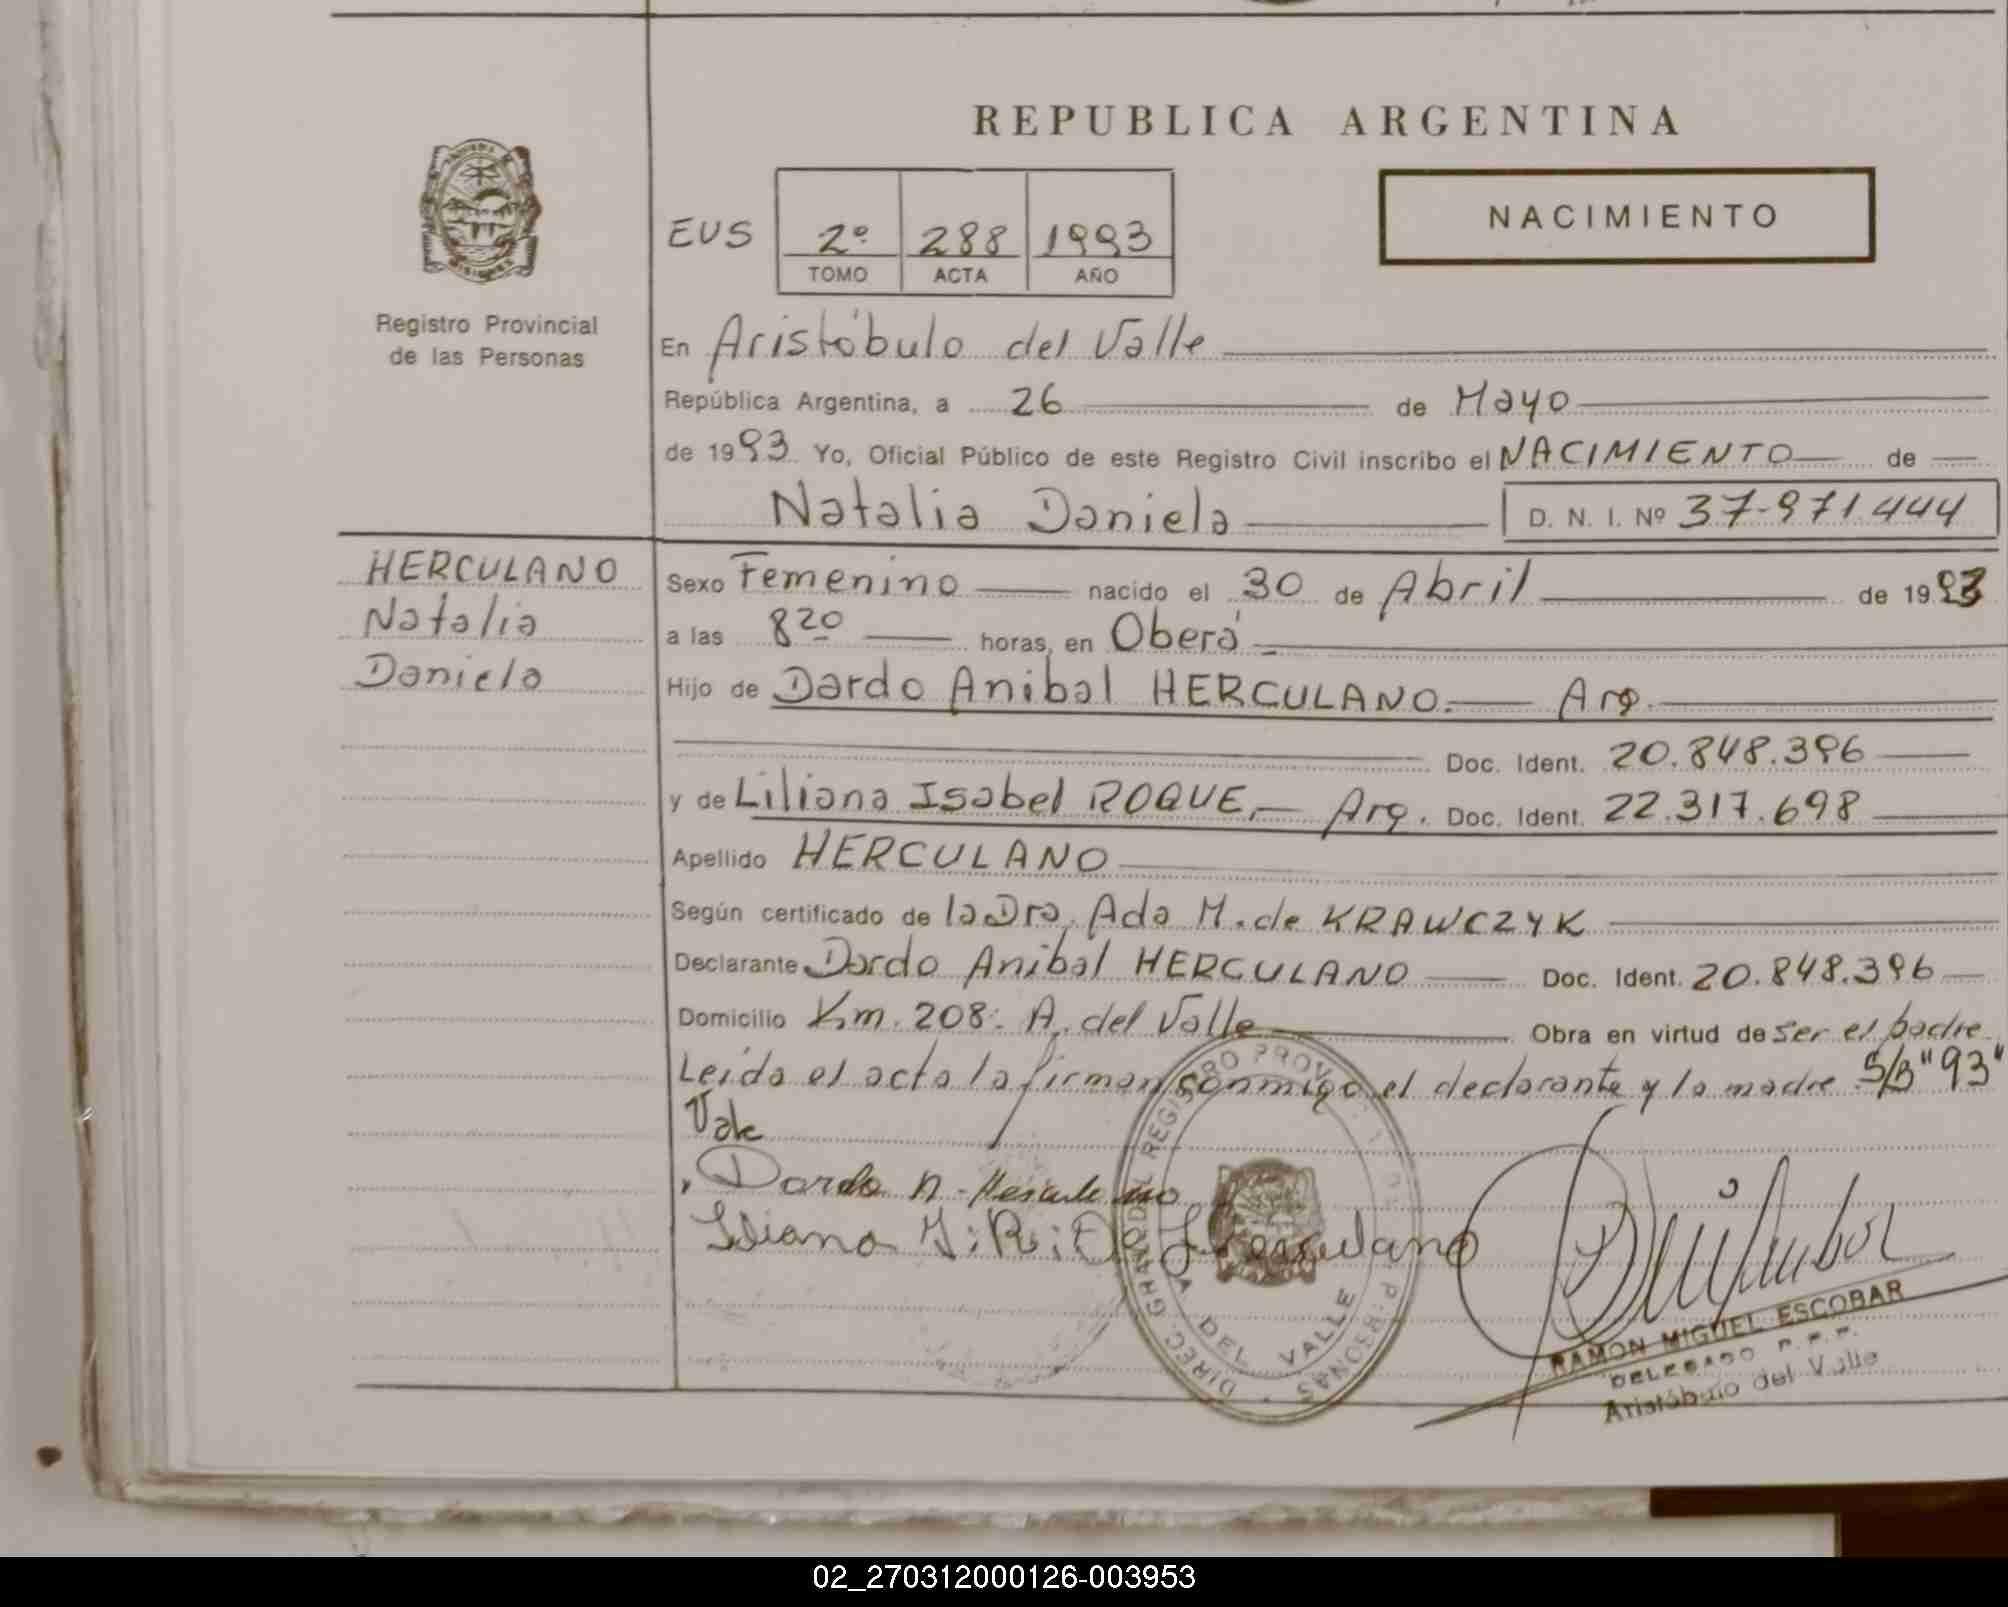 REPUBLICA ARGENTINA
NACIMIENTO
EUS 2º 288 1993
TOMO ACTA AÑO
Registro Provincial
de las Personas
En Aristóbulo del Valle
República Argentina, a 26 de Mayo
de 1993 Yo, Oficial Público de este Registro Civil inscribo el NACIMIENTO de
Natalia Daniela D. N. I. Nº 37.971.444
HERCULANO
Natalia
Daniela
Sexo Femenino nacido el 30 de Abril de 1993
a las 8 20 horas, en Oberá
Hijo de Dardo Anibal HERCULANO. Arg.
Doc. Ident. 20.848.396
y de Liliana Isabel ROQUE, Arg. Doc. Ident. 22.317.698
Apellido HERCULANO
Según certificado de la Dra. Ada M. de KRAWCZYK
Declarante Dardo Anibal HERCULANO Doc. Ident. 20.848.396
Domicilio Km. 208. A. del Valle Obra en virtud de ser el padre
Leída el acta la firman conmigo el declarante y la madre S/B "93"
Vale
Dardo A. Herculano
Liliana I. R. De Herculano
DIREC. GRAL DEL REGISTRO PROV. PERSONAS
DEL VALLE
RAMON MIGUEL ESCOBAR
DELEGADO R.P.P.
Aristóbulo del Valle
02_270312000126-003953